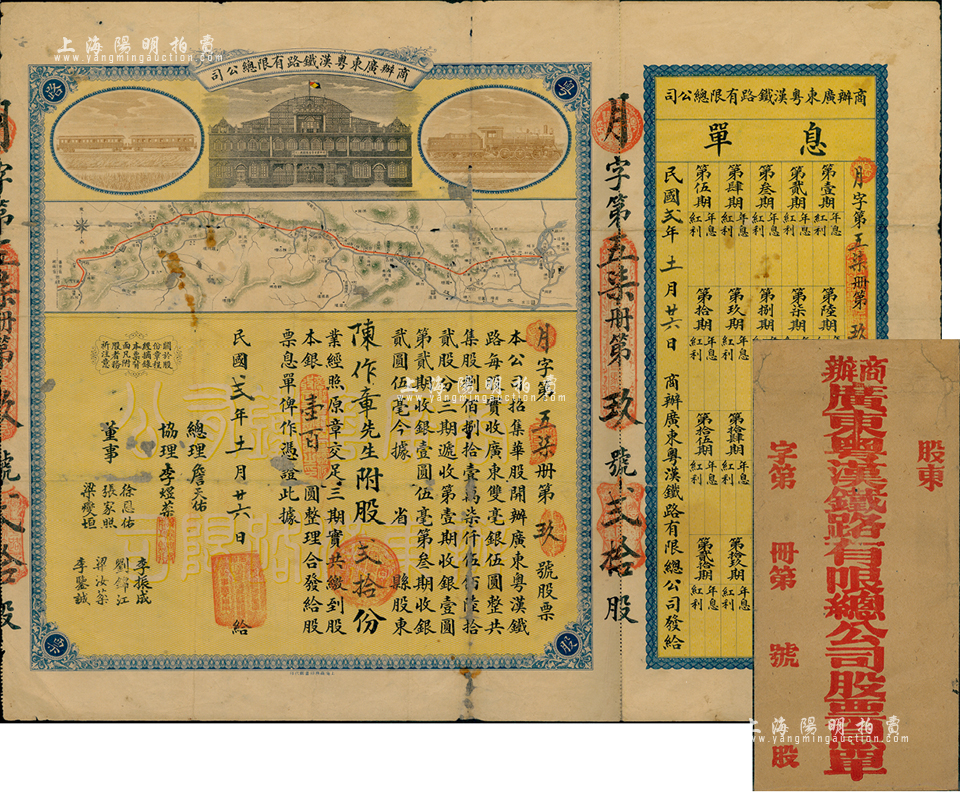 上海陽明拍賣
www.yangmingauction.com
商辦廣東粵漢鐵路有限總公司
粵
路
股
票
月字第五柒册第玖號股票
本公司招集華股開辦廣東粵漢鐵
路每股實收廣東雙毫銀伍圓整共
集股捌佰捌拾壹萬柒仟伍佰陸拾
貳股份三期遞收第壹期收銀壹圓
第貳期收銀壹圓伍毫第叁期收銀
貳圓伍毫今據 省 縣股東
陳作章先生附股弍拾份
業經照原章交足三期實共繳到股
本銀壹百圓整理合發給股
票息單俾作憑證此據
總理詹天佑
協理李煜棻
董事
徐恩佑
張家照
梁燮垣
李振成
劉錦江
梁汝棻
李鑒誠
民國弍年十一月廿六日給
關於股
份章程
經摘錄
本票背
面凡附
股者務
祈注意
月字第五柒册第玖號弍拾股
商辦廣東粵漢鐵路有限總公司
息單
月字第五柒册第玖
第壹期 年息 紅利
第貳期 年息 紅利
第叁期 年息 紅利
第肆期 年息 紅利
第伍期 年息 紅利
第陸期
第柒期 年息
第捌期 年息 紅利
第玖期 年息 紅利
第拾期 年息 紅利
第拾肆期 年息 紅利
第拾伍期 年息 紅利
第拾玖期 年息 紅利
第貳拾期 年息 紅利
民國弍年十一月廿六日 商辦廣東粵漢鐵路有限總公司發給
股東
商辦廣東粵漢鐵路有限總公司股票息單
字第 册第 號 股
上海陽明拍賣
www.yangmingauction.com